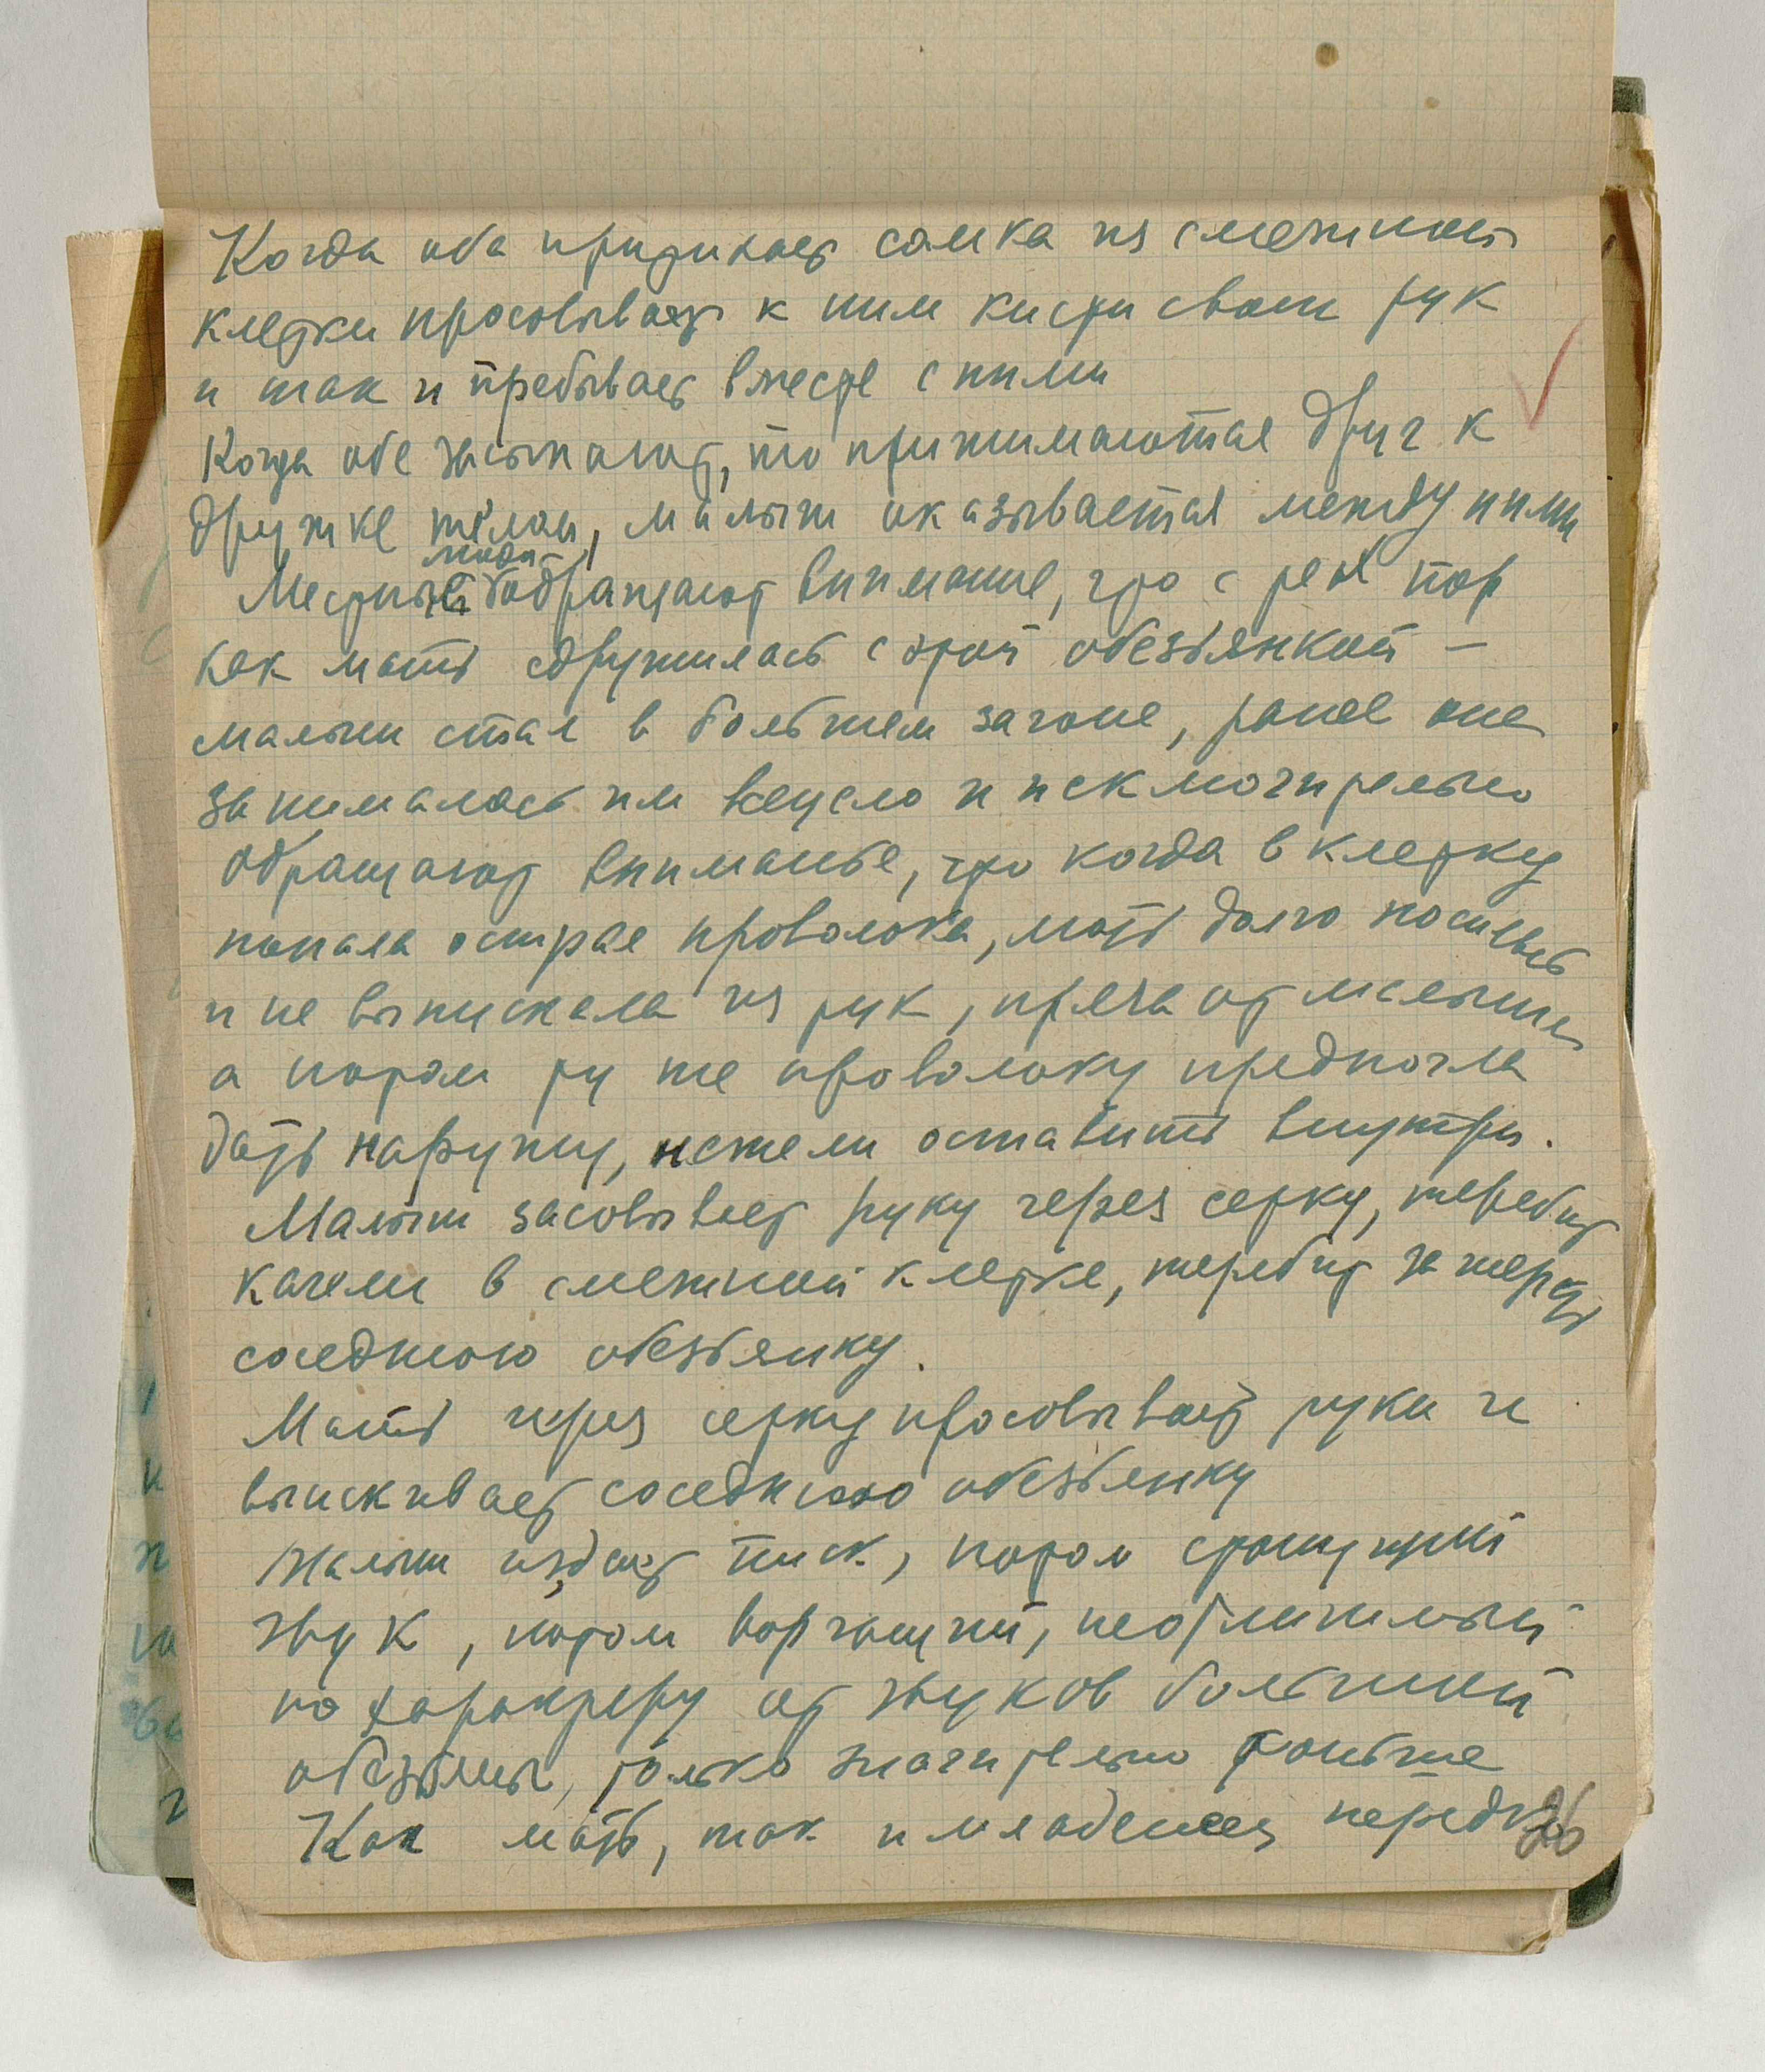 Когда оба притихают самка из смежной
клетки просовывает к ним кисти своих рук
и так и пребывает вместе с ними
Когда обе засыпают, то прижимаются друг к
дружке телом, малыш оказывается между ними
люди
Местные обращают внимание, что с тех пор
как мать сдружилась с этой обезьянкой –
малыш стал в большем загоне, ранее она
занималась им всецело и исключительно
Обращают вниманье, что когда в клетку
попала острая проволока, мать долго носилась
и не выпускала из рук, пряча от малыша
а потом ту же проволоку предпочла
дать наружу, нежели оставить внутри.
Малыш засовывает руку через сетку, теребит
качели в смежной клетке, теребит за шерсть
соседнюю обезьянку.
Мать через сетку просовывает руки и
выискивает соседнюю обезьянку
Малыш издает писк, потом
звук, потом ворчащий, неотличимый
по характеру от звуков большой
обезьяны, только значительно тоньше
Как мать, так и младенец нередко
26